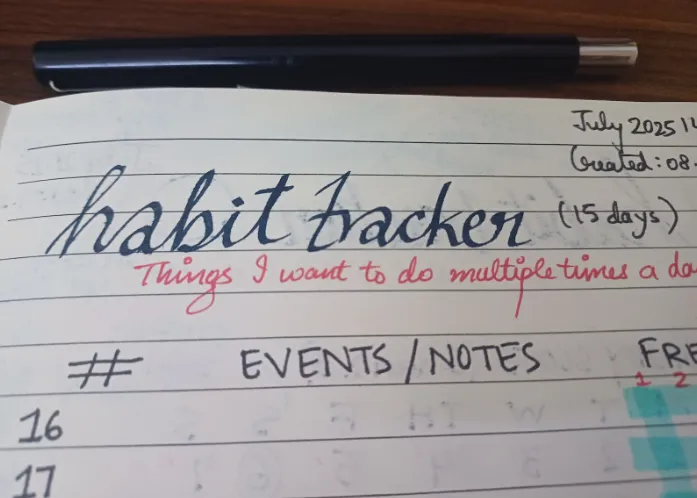 July 2025
Created: 08.
habit tracker (15 days)
Things I want to do multiple times a
# EVENTS / NOTES
1 2
16
17